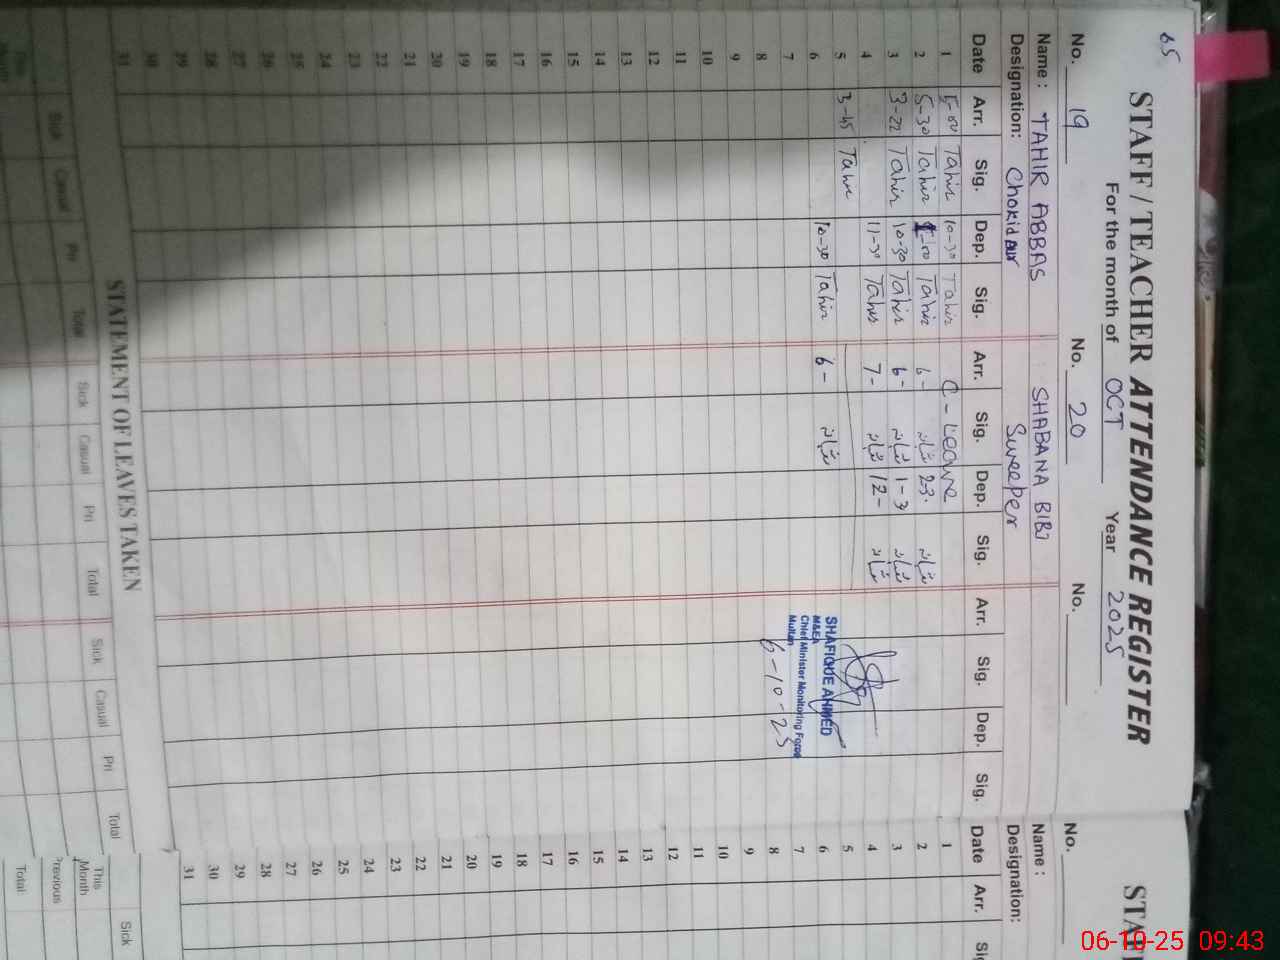 65
STAFF / TEACHER ATTENDANCE REGISTER
For the month of OCT Year 2025
No. 19 No. 20 No.
Name : TAHIR ABBAS SHABANA BIBI
Designation: Chokidar Sweeper
Date Arr. Sig. Dep. Sig. Arr. Sig. Dep. Sig. Arr. Sig. Dep. Sig.
1 5-00 Tahir 10-30 Tahir C-Leave
2 5-30 Tahir Tahir 6- شبانہ 23. شبانہ
3 3-22 Tahir 10-30 Tahir 6- شبانہ 1-3 شبانہ
4 11-30 Tahir 7- شبانہ 12- شبانہ
5 3-45 Tahir
6 10-30 Tahir 6- شبانہ
SHAFIQUE AHMED
M&EA
Chief Minister Monitoring Force
Multan
6-10-25
7
8
9
10
11
12
13
14
15
16
17
18
19
20
21
22
23
24
25
26
27
28
29
30
31
STATEMENT OF LEAVES TAKEN
Sick Casual Pri Total Sick Casual Pri Total Sick Casual Pri Total
This Month
STAF
No.
Name :
Designation:
Date Arr. Sig
1
2
3
4
5
6
7
8
9
10
11
12
13
14
15
16
17
18
19
20
21
22
23
24
25
26
27
28
29
30
31
Sick
This Month
Previous
Total
06-10-25 09:43